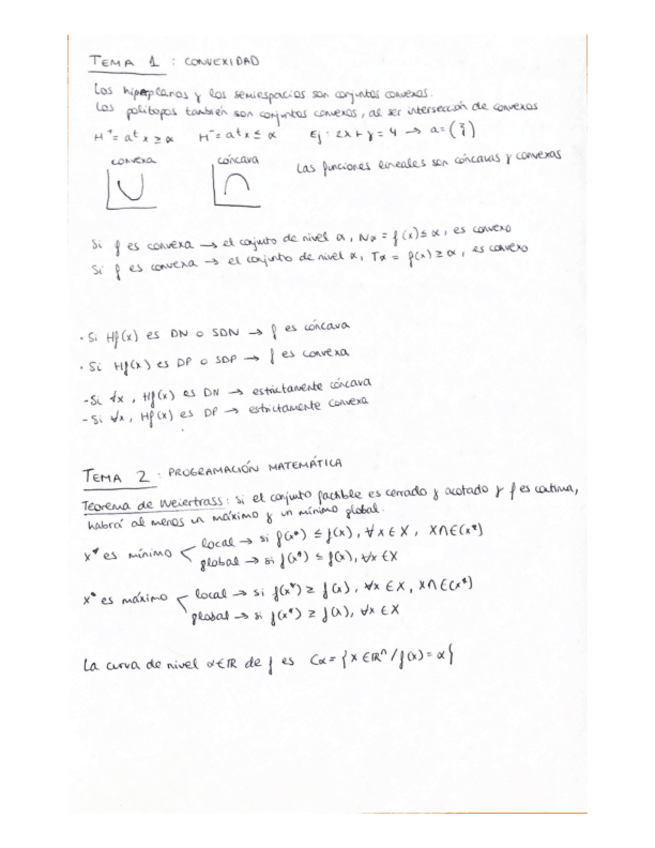 TEMA 1 : CONVEXIDAD
Los hiperplanos y los semiespacios son conjuntos convexos.
Los politopos también son conjuntos convexos, al ser intersección de convexos
H⁺ = aᵗx ≥ α H⁻ = aᵗx ≤ α Ej: 2x + y = 4 → a = (2 1)
convexa cóncava Las funciones lineales son cóncavas y convexas
Si f es convexa → el conjunto de nivel α, Nα = f(x) ≤ α, es convexo
Si f es convexa → el conjunto de nivel α, Tα = f(x) ≥ α, es convexo
· Si Hf(x) es DN o SDN → f es cóncava
· Si Hf(x) es DP o SDP → f es convexa
- Si ∀x, Hf(x) es DN → estrictamente cóncava
- Si ∀x, Hf(x) es DP → estrictamente convexa
TEMA 2 : PROGRAMACIÓN MATEMÁTICA
Teorema de Weiertrass: si el conjunto factible es cerrado y acotado y f es continua,
habrá al menos un máximo y un mínimo global.
x* es mínimo local → si f(x*) ≤ f(x), ∀x ∈ X, X∩E(x*)
global → si f(x*) ≤ f(x), ∀x ∈ X
x* es máximo local → si f(x*) ≥ f(x), ∀x ∈ X, X∩E(x*)
global → si f(x*) ≥ f(x), ∀x ∈ X
La curva de nivel α∈ℝ de f es Cα = {x ∈ ℝⁿ / f(x) = α}